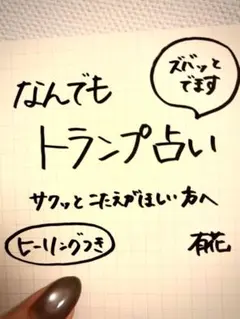 ズバッと
でます
なんでも
トランプ占い
サクッとこたえがほしい方へ
ヒーリングつき
有花